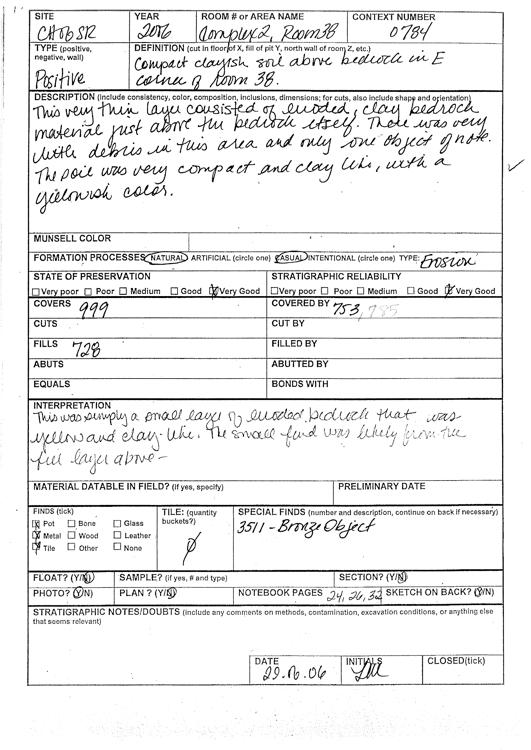 SITE YEAR ROOM # or AREA NAME CONTEXT NUMBER
CH06SR 2006 Complex 2, Room 38 0784
TYPE (positive, negative, wall) DEFINITION (cut in floor of X, fill of pit Y, north wall of room Z, etc.)
Positive Compact clayish soil above bedrock in E
corner of Room 38.
DESCRIPTION (Include consistency, color, composition, inclusions, dimensions; for cuts, also include shape and orientation)
This very thin layer consisted of eroded, clay bedrock
material just above the bedrock itself. There was very
little debris in this area and only one object of note.
The soil was very compact and clay like, with a
yellowish color.
MUNSELL COLOR
FORMATION PROCESSES NATURAL ARTIFICIAL (circle one) CASUAL INTENTIONAL (circle one) TYPE: Erosion
STATE OF PRESERVATION STRATIGRAPHIC RELIABILITY
Very poor Poor Medium Good Very Good Very poor Poor Medium Good Very Good
COVERS 999 COVERED BY 753, 785
CUTS CUT BY
FILLS 728 FILLED BY
ABUTS ABUTTED BY
EQUALS BONDS WITH
INTERPRETATION
This was simply a small layer of eroded bedrock that was
yellow and clay-like. The small find was likely from the
fill layer above-
MATERIAL DATABLE IN FIELD? (if yes, specify) PRELIMINARY DATE
FINDS (tick) TILE: (quantity buckets?) SPECIAL FINDS (number and description, continue on back if necessary)
Pot Bone Glass 3511 - Bronze Object
Metal Wood Leather
Tile Other None
FLOAT? (Y/N) SAMPLE? (if yes, # and type) SECTION? (Y/N)
PHOTO? (Y/N) PLAN? (Y/N) NOTEBOOK PAGES 24, 26, 32 SKETCH ON BACK? (Y/N)
STRATIGRAPHIC NOTES/DOUBTS (include any comments on methods, contamination, excavation conditions, or anything else
that seems relevant)
DATE INITIALS CLOSED(tick)